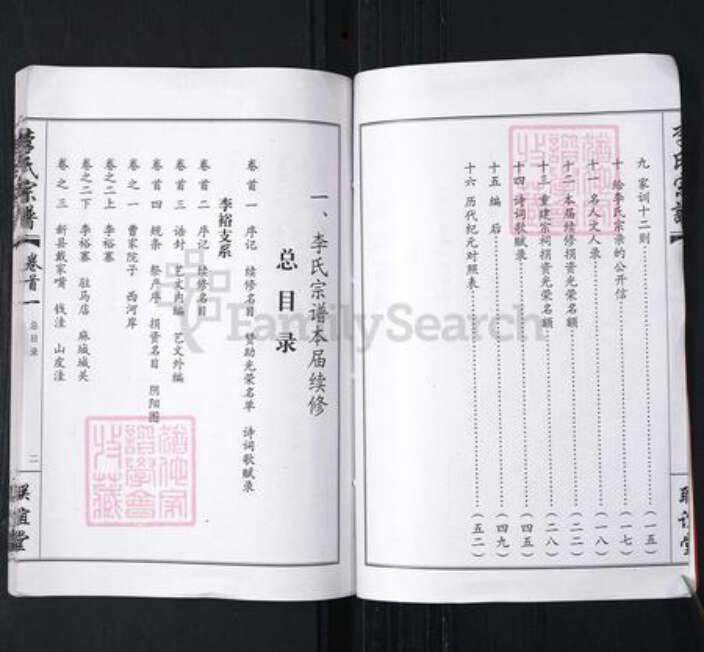 李氏宗谱
联谊堂
九 家训十二则 (一五)
十 给李氏宗亲的公开信 (一七)
十一 名人文人录 (一八)
十二 本届续修捐资光荣名额 (二二)
十三 重建宗祠捐资光荣名额 (二八)
十四 诗词歌赋录 (四五)
十五 编后 (四九)
十六 历代纪元对照表 (五二)
一、李氏宗谱本届续修
总目录
卷首一 序记 续修名目 赞助光荣名单 诗词歌赋录
李裕支系
卷首二 序记 续修名目
卷首三 诰封 艺文内编 艺文外编
卷首四 规条 祭产序 捐资名目 阴阳图
卷之一 曹家院子 西河岸
卷之二上 李裕寨
卷之二下 李裕寨 驻马店 麻城城关
卷之三 新县戴家嘴 钱洼 山皮洼
李氏宗谱
卷首一
总目录
二
联谊堂
FamilySearch